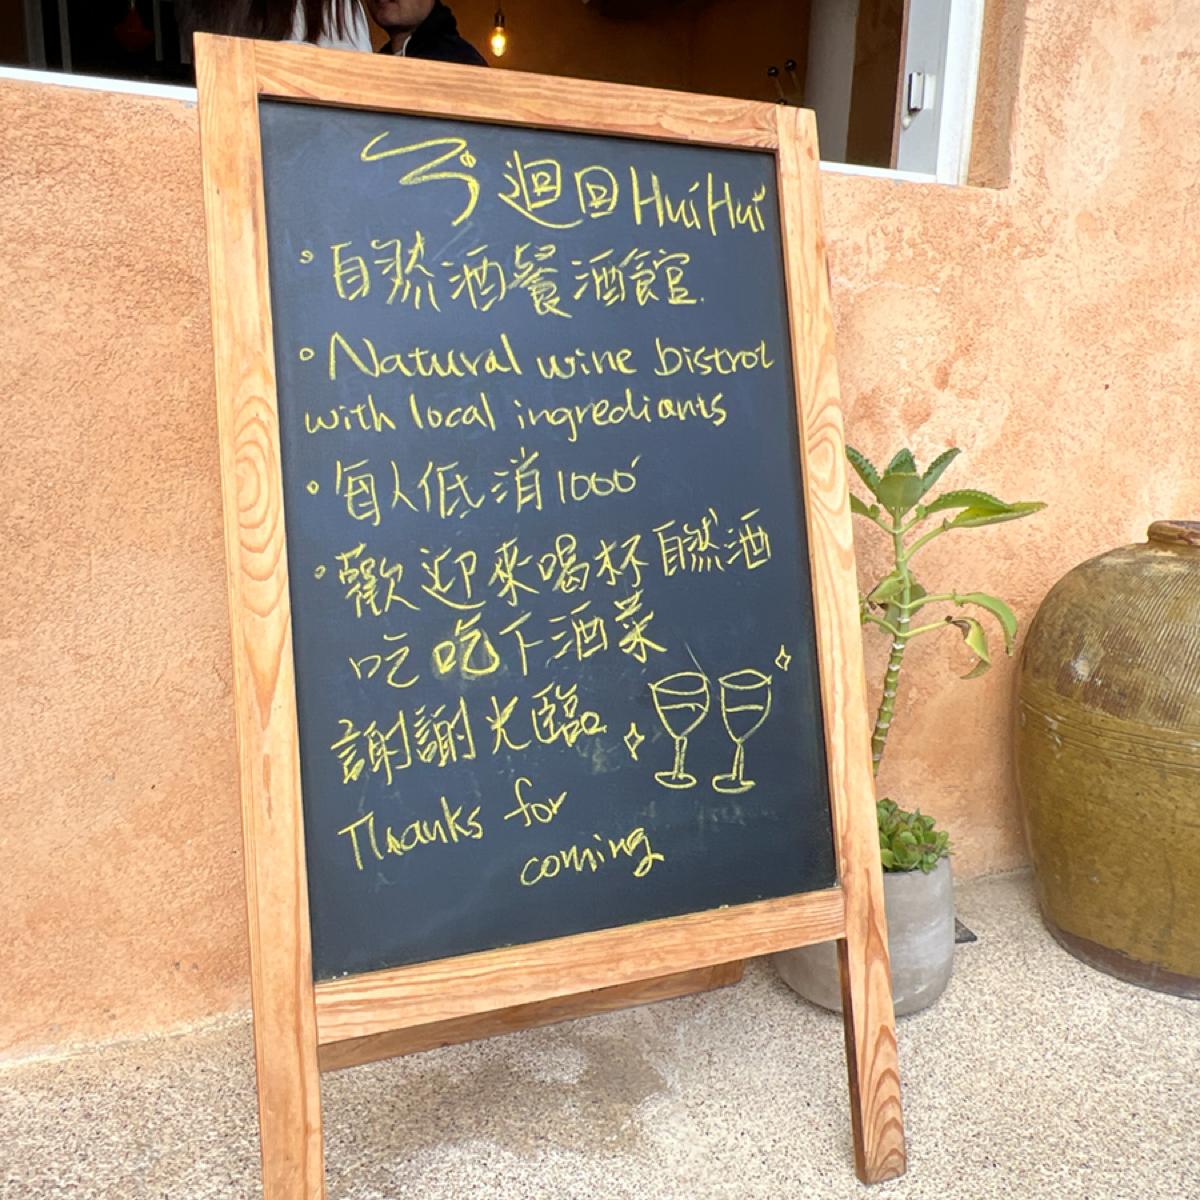 迴回HuiHui
◦自然酒餐酒館.
◦Natural wine bistrot
with local ingrediants
◦每人低消1000
◦歡迎來喝杯自然酒
吃吃下酒菜
謝謝光臨
Thanks for
coming